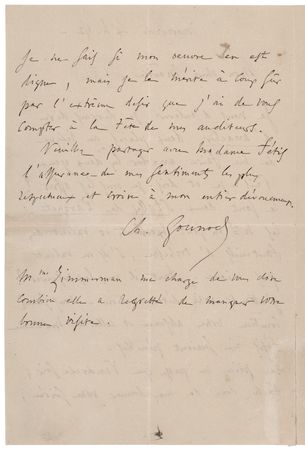 Je ne sais si mon oeuvre en est
digne, mais je le mérite à coup sûr
par l'extrême désir que j'ai de vous
compter à la tête de mes auditeurs.
Veuillez partager avec Madame Fétis
l'assurance de mes sentiments les plus
respectueux et croire à mon entier dévouement.
Ch. Gounod
Mme Zimmerman me charge de vous dire
combien elle a regretté de manquer votre
bonne visite.